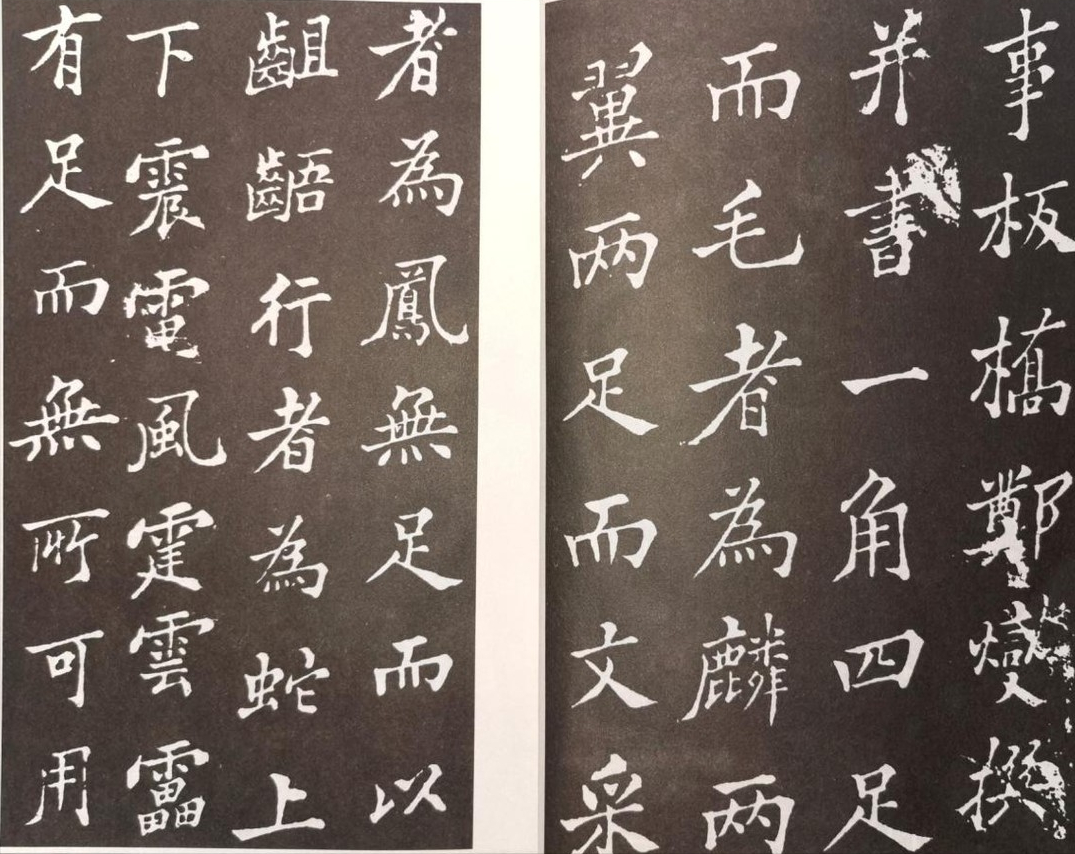 事板橋鄭燮撰
并書一角四足
而毛者為麟两
翼两足而文采
者為鳳無足而以
齟齬行者為蛇上
下震電風霆雲靁
有足而無所可用